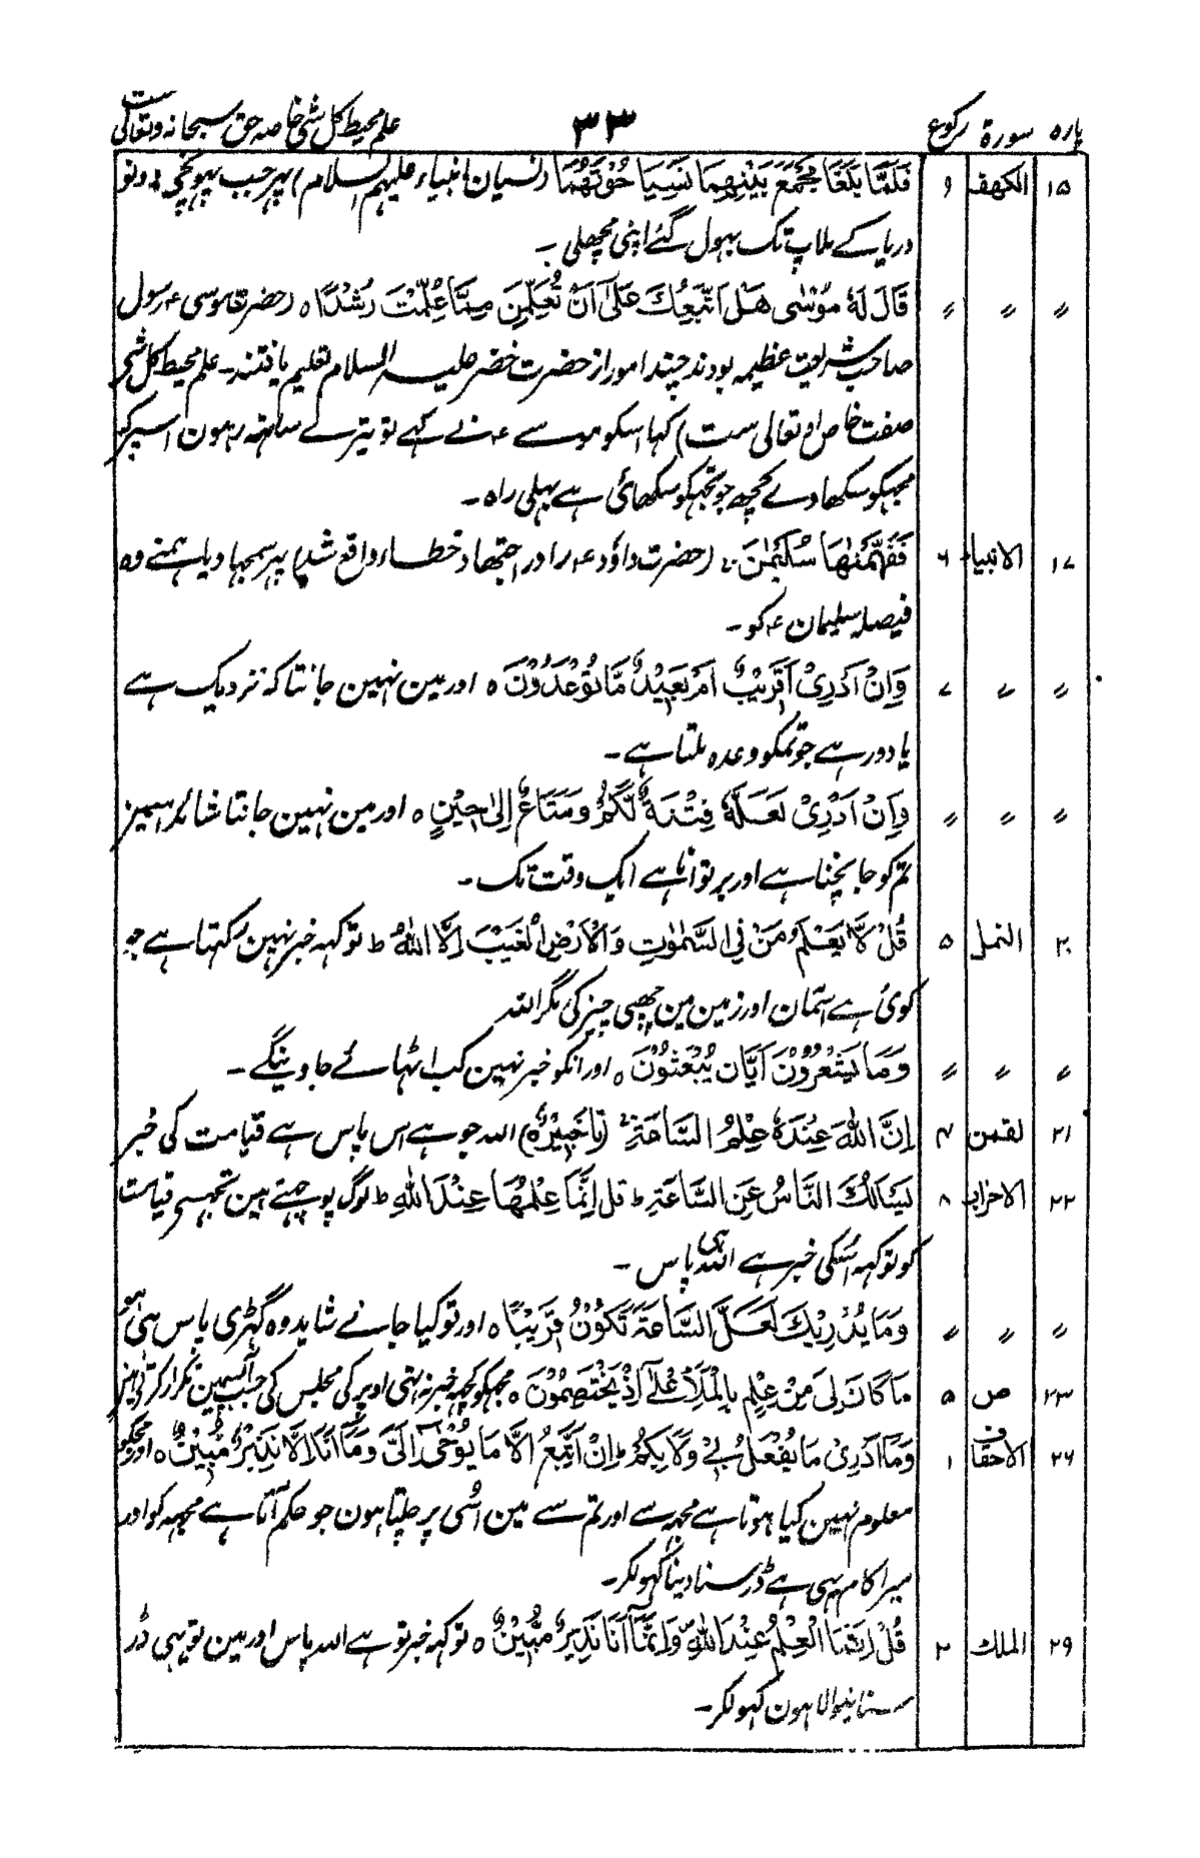 پاره سورة رکوع ۳۳ علم محیط کل شئ خاصه حق سبحانه وتعالی ست
۱۵ الکهف ۹ فَلَمَّا بَلَغَا مَجْمَعَ بَيْنِهِمَا نَسِيَا حُوْتَهُمَا (نسیان انبیاء علیهم السلام) پہر جب پہونچے دونو
دریا کے ملاپ تک بہول گئے اپنی مچھلی ۔
〃 〃 〃 قَالَ لَهٗ مُوْسٰى هَلْ اَتَّبِعُكَ عَلٰٓى اَنْ تُعَلِّمَنِ مِمَّا عُلِّمْتَ رُشْدًا ٥ (حضرت موسی ؑ رسول
صاحب شریعت عظیمہ بودند چند امور از حضرت خضر علیہ السلام تعلیم یافتند ۔ علم محیط کل شئ
صفت خاص او تعالی ست) کہا اسکو موسے ؑ نے کہے تو تیرے ساتہہ رہون اسپر کہ
مجہکو سکھا دے کچھ جو تجہکو سکھائی ہے بہلی راہ ۔
۱۷ الانبیاء ۶ فَفَهَّمْنٰهَا سُلَيْمٰنَ ، (حضرت داؤد ؑ را در اجتہاد خطاء واقع شد) پہر سمجہا دیا ہمنے وہ
فیصلہ سلیمان ؑ کو ۔
〃 〃 ۷ وَاِنْ اَدْرِىْٓ اَقَرِيْبٌ اَمْ بَعِيْدٌ مَّا تُوْعَدُوْنَ ٥ اور مین نہین جانتا کہ نزدیک ہے
یا دور ہے جو تمکو وعدہ ملتا ہے ۔
〃 〃 〃 وَاِنْ اَدْرِىْ لَعَلَّهٗ فِتْنَةٌ لَّكُمْ وَمَتَاعٌ اِلٰى حِيْنٍ ٥ اور مین نہین جانتا شائد اسمین
تم کو جانچنا ہے اور برتوانا ہے ایک وقت تک ۔
۲۰ النمل ۵ قُلْ لَّا يَعْلَمُ مَنْ فِى السَّمٰوٰتِ وَالْاَرْضِ الْغَيْبَ اِلَّا اللّٰهُ ط تو کہہ خبر نہین رکہتا ہے جو
کوئ ہے آسمان اور زمین مین چھپی چیز کی مگر اللہ
〃 〃 〃 وَمَا يَشْعُرُوْنَ اَيَّانَ يُبْعَثُوْنَ ٥ اور انکو خبر نہین کب اٹہائے جاوینگے ۔
۲۱ لقمن ۴ اِنَّ اللّٰهَ عِنْدَهٗ عِلْمُ السَّاعَةِ ۚ (تا خَبِيْرٌ ٥) اللہ جو ہے اس پاس ہے قیامت کی خبر
۲۲ الاحزاب ۸ يَسْاَلُكَ النَّاسُ عَنِ السَّاعَةِ ط قل اِنَّمَا عِلْمُهَا عِنْدَ اللّٰهِ ط لوگ پوچہتے ہین تجہسے قیامت
کو تو کہہ اسکی خبر ہے اللہ ہی پاس ۔
〃 〃 〃 وَمَا يُدْرِيْكَ لَعَلَّ السَّاعَةَ تَكُوْنُ قَرِيْبًا ٥ اور تو کیا جانے شاید وہ گہڑی پاس ہی ہو
۲۳ ص ۵ مَا كَانَ لِىَ مِنْ عِلْمٍ بِالْمَلَاِ الْاَعْلٰٓى اِذْ يَخْتَصِمُوْنَ ٥ مجہکو کچہہ خبر نہ تہی اوپر کی مجلس کی جب آپسمین تکرار کرتے ہین
۲۶ الاحقاف ۱ وَمَآ اَدْرِىْ مَا يُفْعَلُ بِىْ وَلَا بِكُمْ ط اِنْ اَتَّبِعُ اِلَّا مَا يُوْحٰٓى اِلَىَّ وَمَآ اَنَا اِلَّا نَذِيْرٌ مُّبِيْنٌ ٥ اور مجکو
معلوم نہین کیا ہوتا ہے مجہہ سے اور تم سے مین اُسی پر چلتا ہون جو حکم آتا ہے مجہہ کو اور
میرا کام یہی ہے ڈر سنا دینا کہولکر ۔
۲۹ الملك ۲ قُلْ اِنَّمَا الْعِلْمُ عِنْدَ اللّٰهِ وَاِنَّمَآ اَنَا نَذِيْرٌ مُّبِيْنٌ ٥ تو کہہ خبر تو ہے اللہ پاس اور مین تو یہی ڈر
سنانیوالا ہون کہولکر ۔